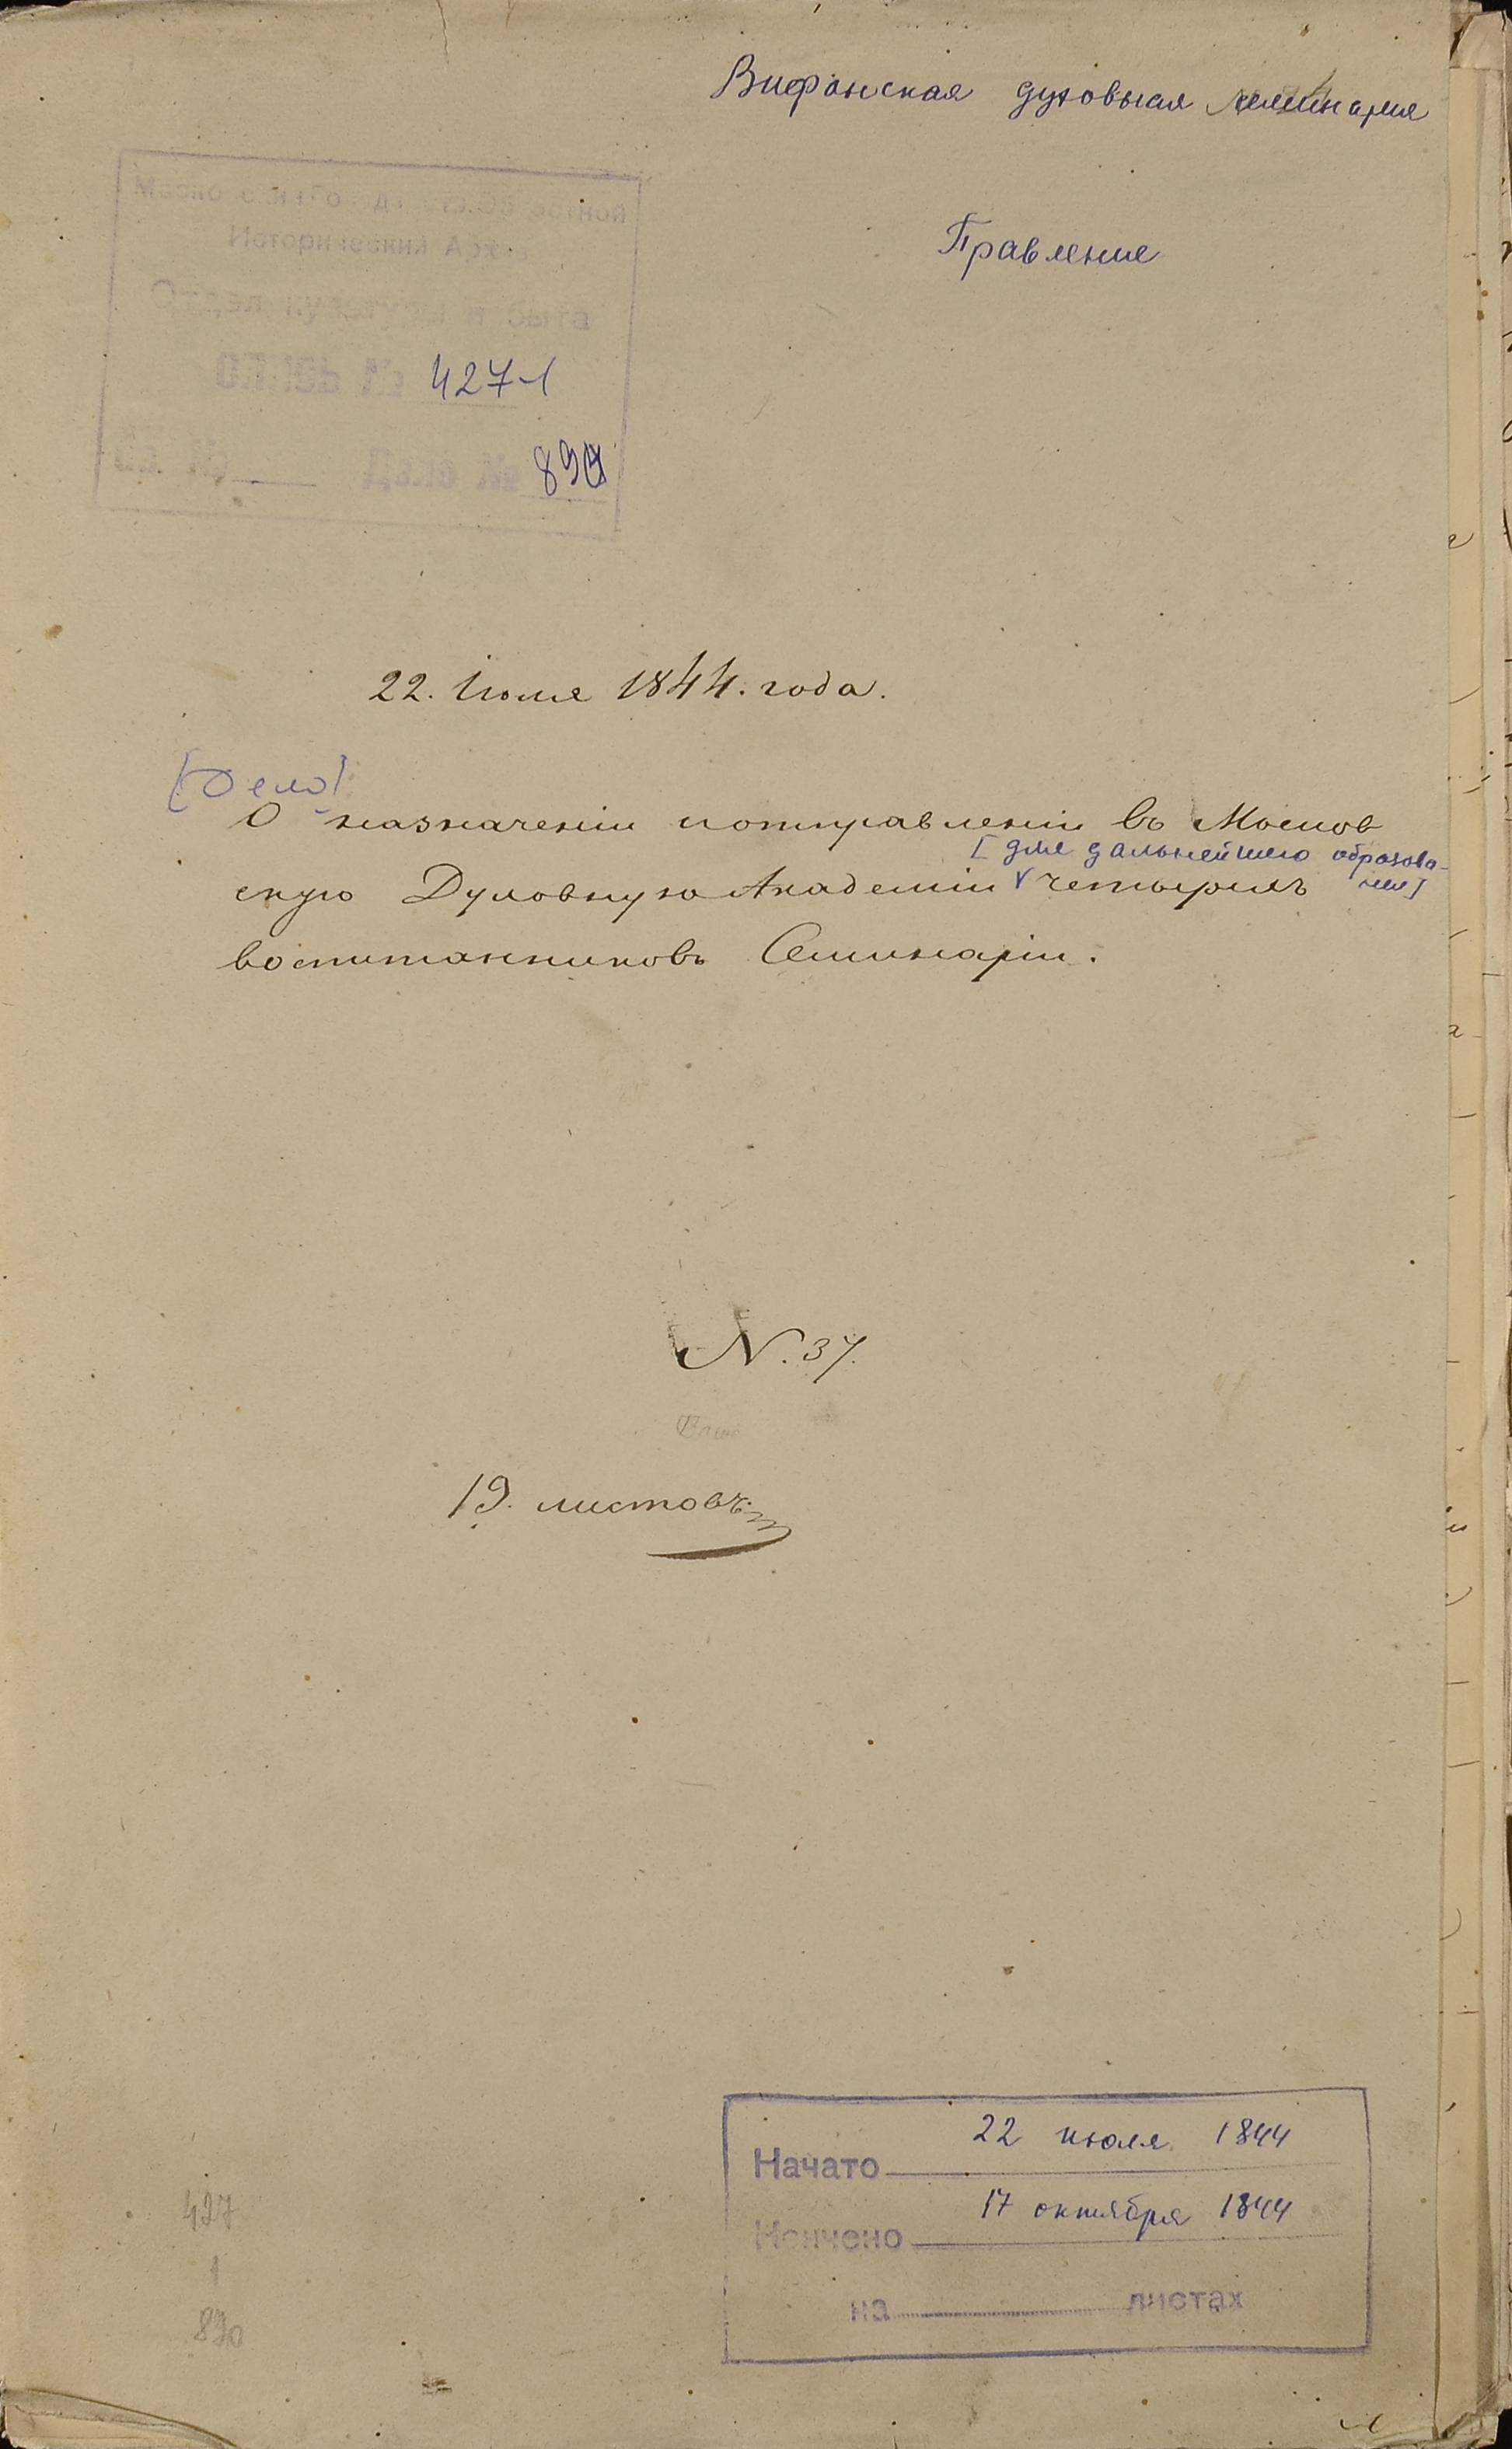 Вифанская духовная семинария
Правление
Исторический Архив
Отдел культуры и быта
ОПИСЬ № 427-1
Св. № Дело № 890
22. Іюля 1844. года.
[Дело]
О назначеніи и отправленіи въ Москов
[для дальнейшего образова-
скую Духовную Академію четырехъ ния]
воспитанниковъ Семинаріи.
N. 37.
19. листовъ
22 июля 1844
Начато
17 октября 1844
Кончено
на листах
427
1
890